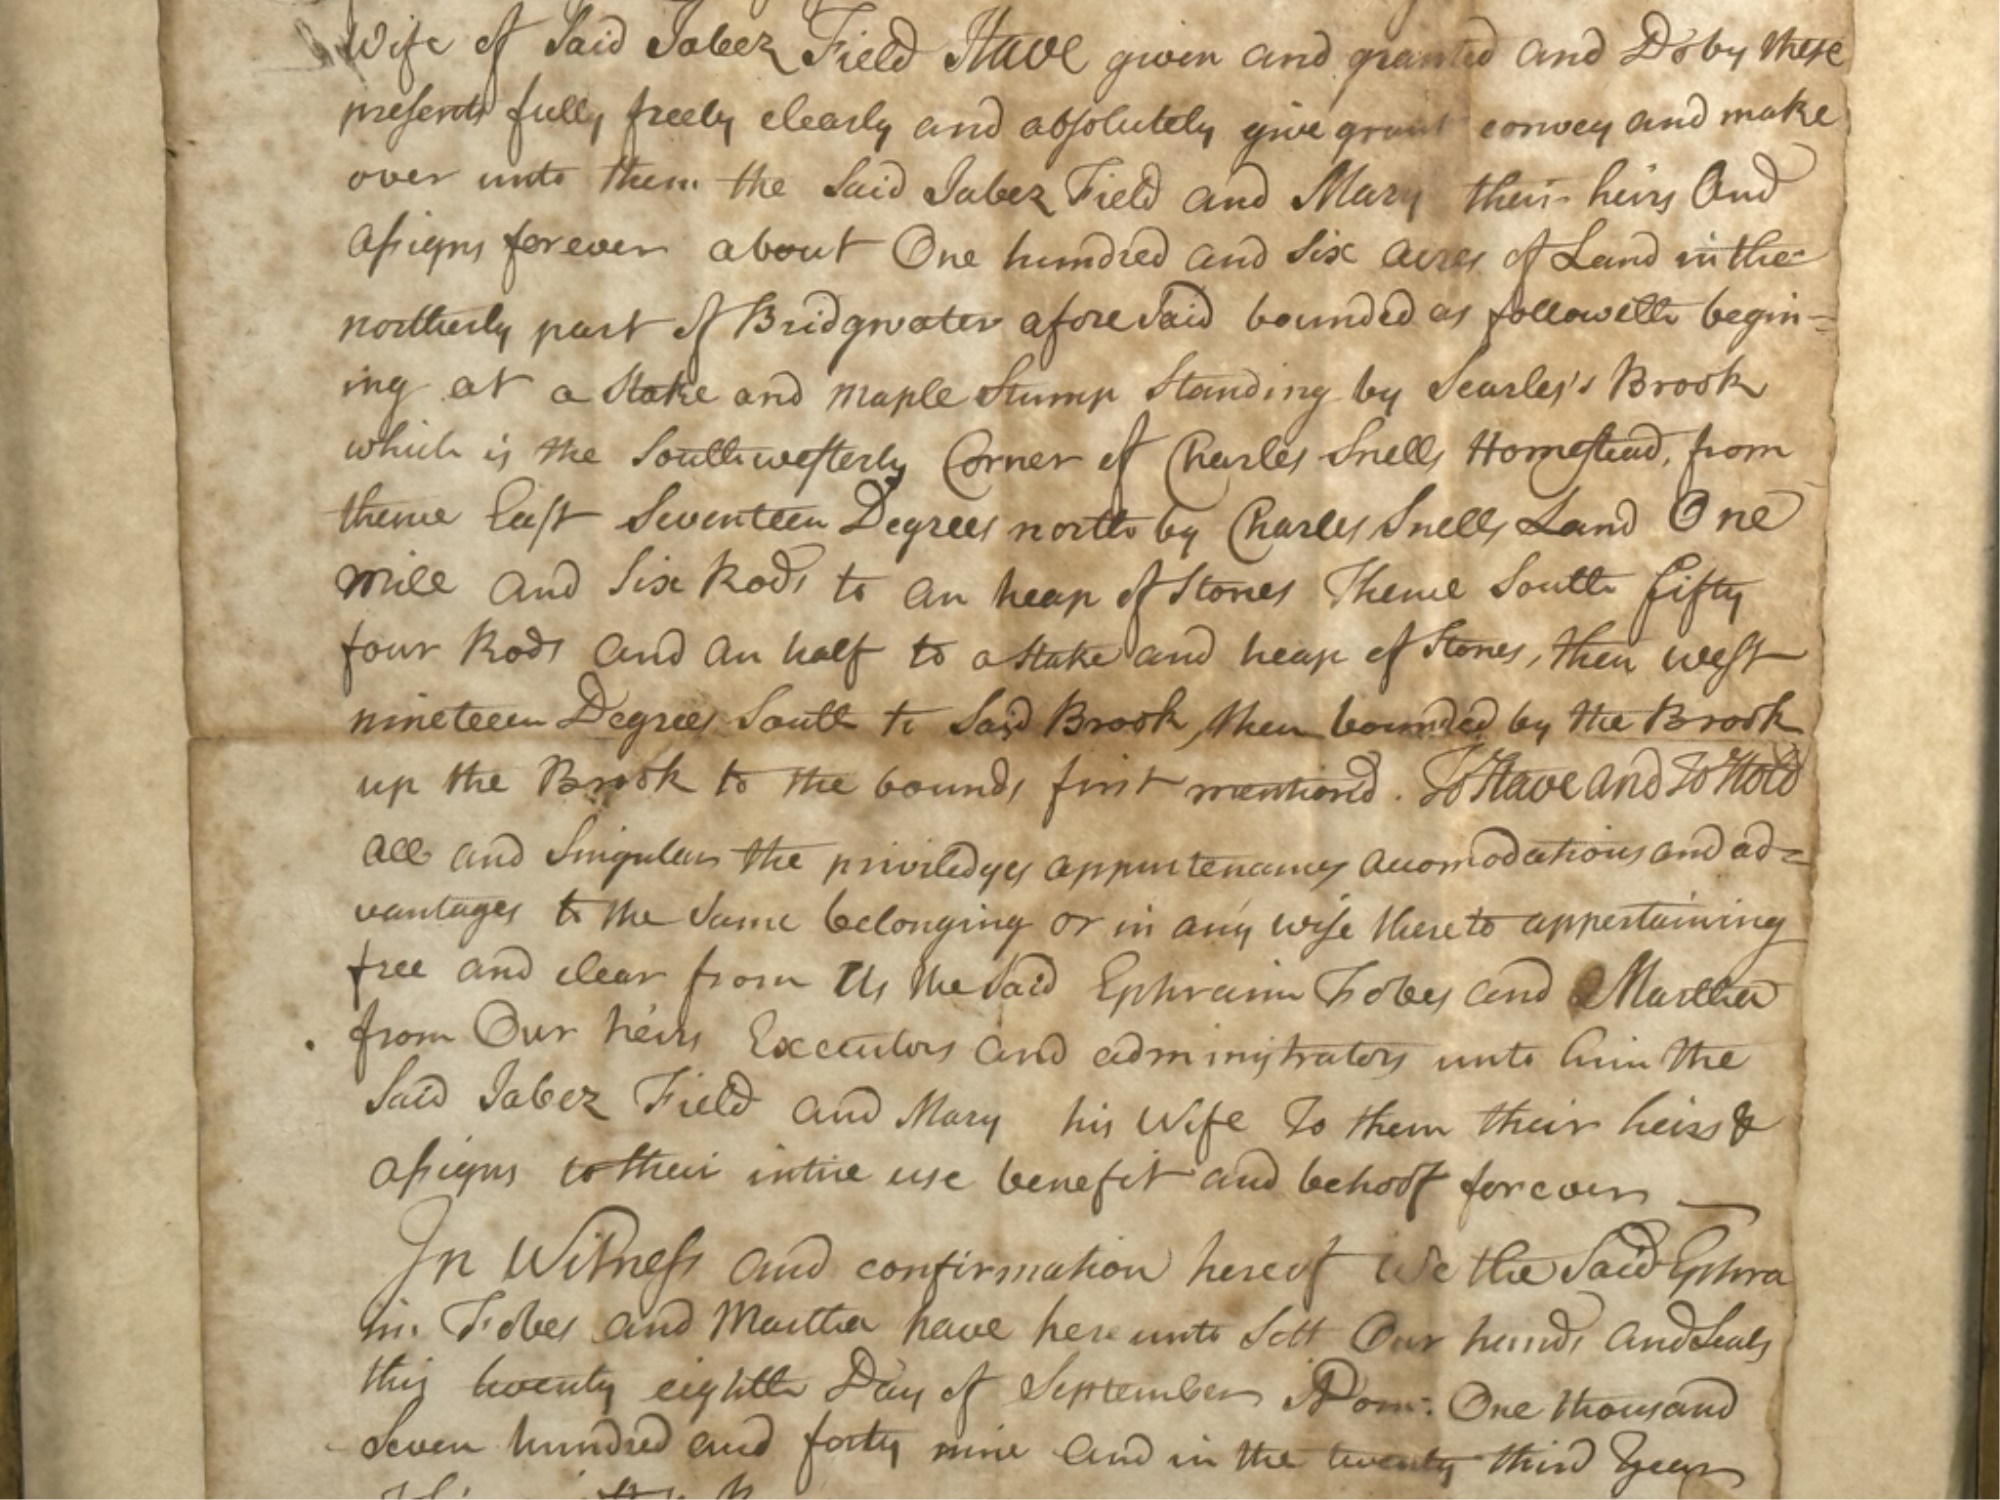 Wife of Said Jabez Field Have given and granted and Do by these
presents fully freely clearly and absolutely give grant convey and make
over unto them the Said Jabez Field and Mary their heirs And
assigns forever about One hundred and Six acres of Land in the
northerly part of Bridgwater afore Said bounded as followeth begin=
ing at a Stake and maple Stump Standing by Searles's Brook
which is the Southwesterly Corner of Charles Snells Homestead, from
thence East Seventeen Degrees north by Charles Snells Land One
mile and Six Rods to an heap of Stones Thence South fifty
four Rods and an half to a Stake and heap of Stones, then west
nineteen Degrees South to Said Brook, then bounded by the Brook
up the Brook to the bounds first mentiond. To Have and To Hold
all and Singular the priviledges appurtenances acomodations and ad=
vantages to the Same belonging or in any wise there to appertaining
free and clear from Us the Said Ephraim Fobes and Martha
from Our heirs Executors and administrators unto him the
Said Jabez Field and Mary his Wife To them their heirs &
assigns to their intire use benefit and behoof forever
In Witness and confirmation hereof We the Said Ephra
im Fobes and Martha have here unto Sett Our hands and Seals
this twenty eighth Day of September ADom: One thousand
Seven hundred and forty nine and in the twenty third Year